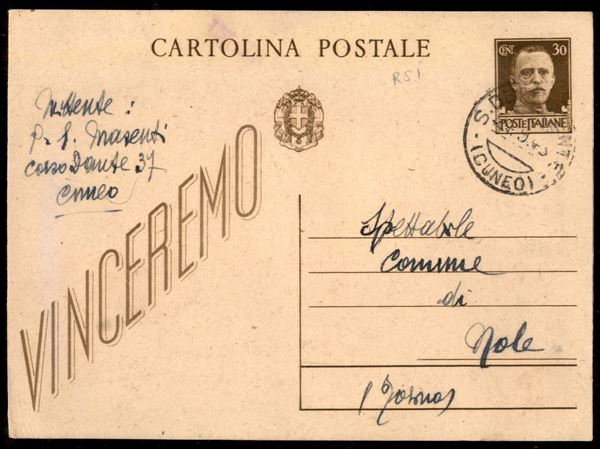 CARTOLINA POSTALE
CENT. 30
POSTE ITALIANE
RSI
(CUNEO)
Mittente:
Corso Dante 37
Cuneo
VINCEREMO
Spettabile
Comune
di
Nole
(Torino)